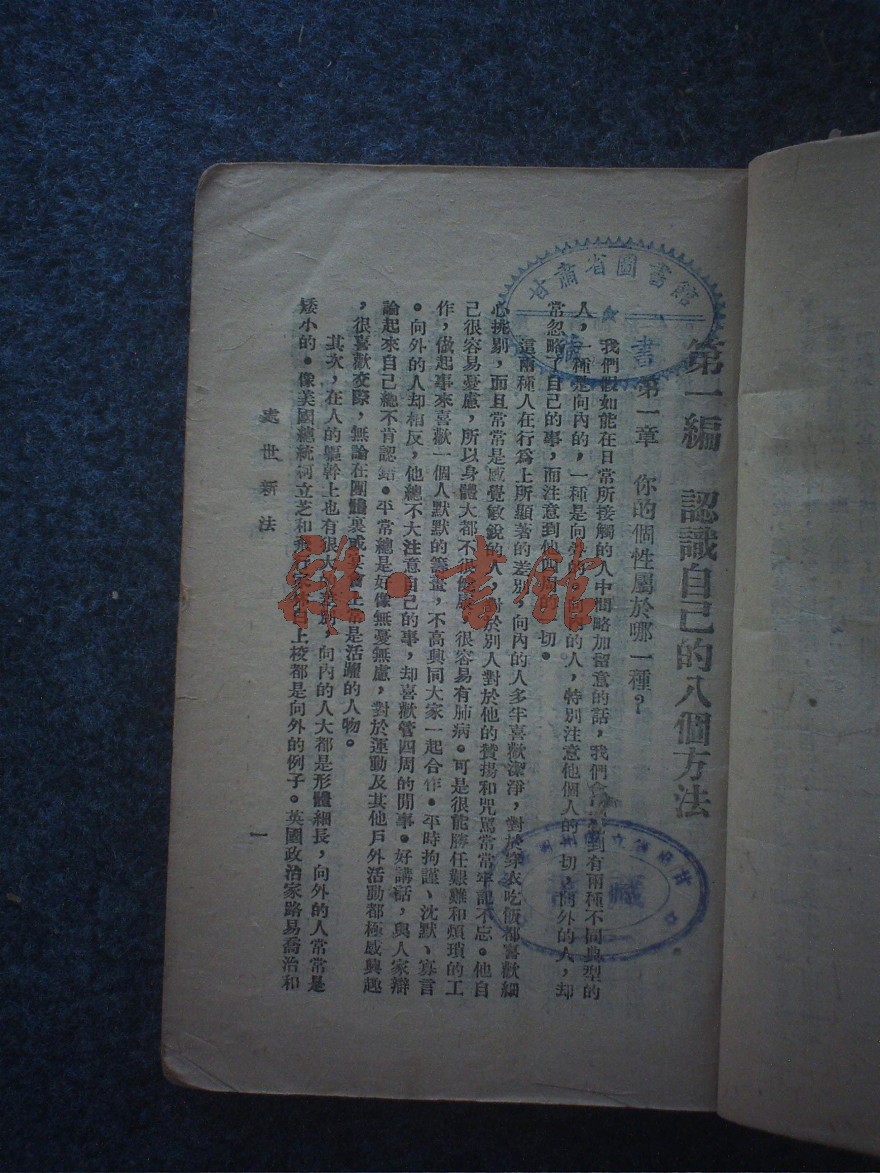 第一編 認識自己的八個方法
第一章 你的個性屬於哪一種？
我們假如能在日常所接觸的人中間略加留意的話，我們會到有兩種不同典型的
人，一種是向內的，一種是向的人，特別注意他個人的一切，向外的人，却
常忽略了自己的事，而注意到他四周的一切。
這兩種人在行爲上所顯著的差別，向內的人多半喜歡潔淨，對於穿衣吃飯都喜歡細
心挑剔，而且常常是感覺敏銳的人，對於別人對於他的贊揚和咒罵常常牢記不忘。他自
己很容易憂慮，所以身體大都不很健康，很容易有肺病。可是很能勝任艱難和煩瑣的工
作，做起事來喜歡一個人默默的籌畫，不高興同大家一起合作。平時拘謹、沈默、寡言
。向外的人却相反，他總不大注意自己的事，却喜歡管四周的閒事。好講話，與人家辯
論起來自己總不肯認錯。平常總是好像無憂無慮，對於運動及其他戶外活動都極感興趣
，很喜歡交際，無論在團體裏或宴會上常是活躍的人物。
其次，在人的軀幹上也有很大差別，向內的人大都是形體細長，向外的人常常是
矮小的。像美國總統柯立芝和飛行家林白上校都是向外的例子。英國政治家路易喬治和
處世新法
一
甘肅省圖書館
藏書
雜·書館